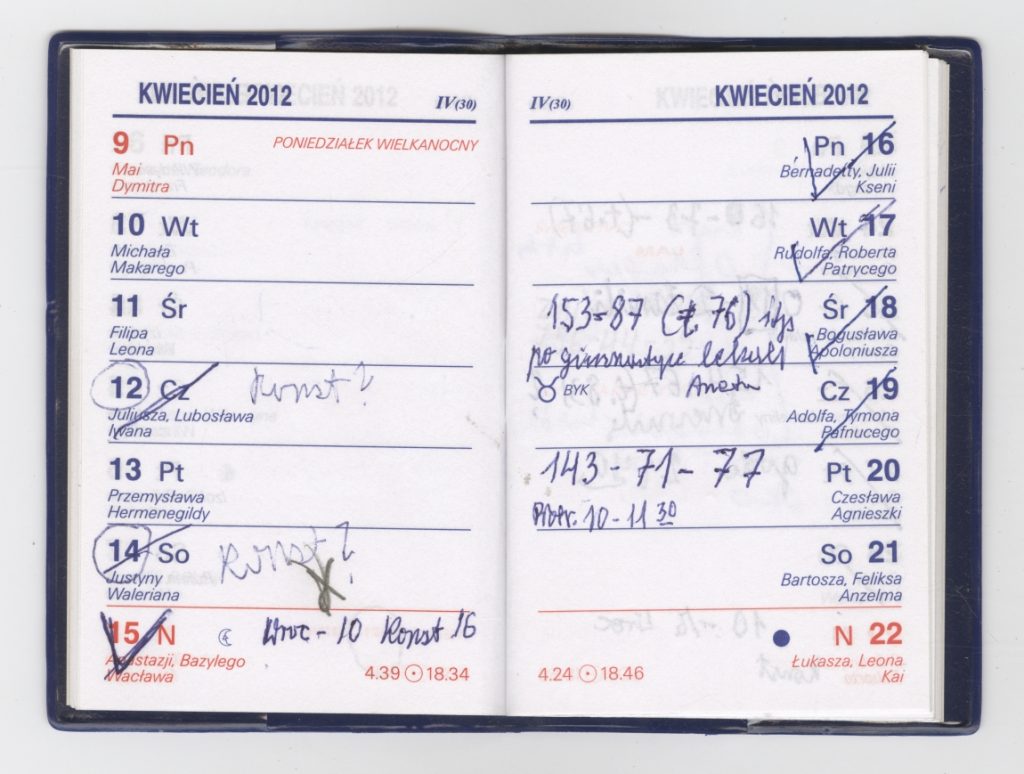 KWIECIEŃ 2012
IV(30)
9 Pn
PONIEDZIAŁEK WIELKANOCNY
Mai
Dymitra
10 Wt
Michała
Makarego
11 Śr
Filipa
Leona
12 Cz Konst?
Juliusza, Lubosława
Iwana
13 Pt
Przemysława
Hermenegildy
14 So Konst?
Justyny
Waleriana
15 N Wroc - 10 Konst 16
Anastazji, Bazylego
Wacława
4.39 18.34
IV(30)
KWIECIEŃ 2012
Pn 16
Bernadetty, Julii
Kseni
Wt 17
Rudolfa, Roberta
Patrycego
153-87 (t. 76)
Śr 18
Bogusława
Apoloniusza
po gimnastyce
BYK
Cz 19
Adolfa, Tymona
Pafnucego
143-71-77
Pt 20
Czesława
Agnieszki
10-11 30
So 21
Bartosza, Feliksa
Anzelma
N 22
Łukasza, Leona
Kai
4.24 18.46